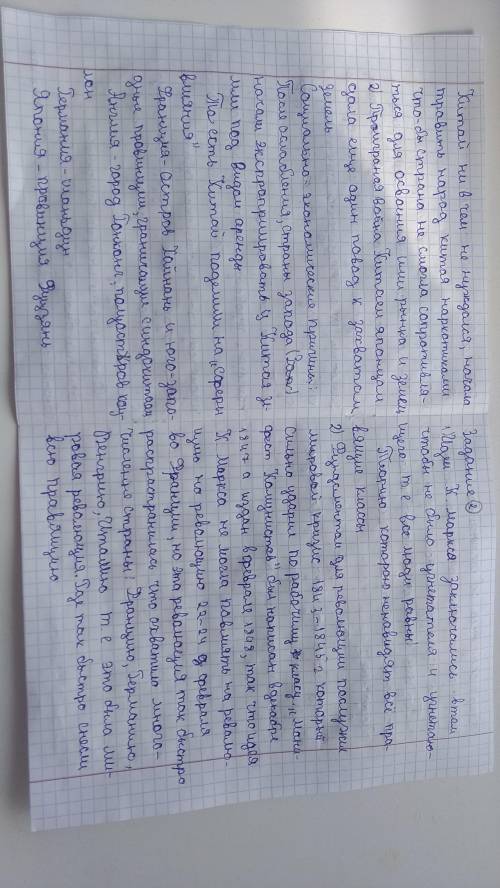 Китай ни в чем не нуждался, начала
травить народ китая наркотиками
что-бы страна не смогла сопротивля-
ться для освоения ими рынка и земец
2) Проиграная война Китаем японцам
дала еще один повод к захватам
земель
Социально-экономические причины:
После ослабления, страны запада (Запад)
начали экспроприировать у Китая зе
мли под видом аренды
То есть Китай поделили на „Сферы
влияния"
Франция - остров Хайнань и юго-запа-
дные провинции, граничащие с индокитаем
Англия - город Гонконг, полуостров кау-
лон
Германия - шаньдун
Япония - провинция Фуцзянь
Задание 2
1) Идеи К Маркса заключались в том
чтобы не было угнетателя и угнетаю-
щего т е все люди равны
Теорию которою ненавидят всё пра-
вящие классы
2) Фундаментом для революции послужил
мировой кризис 1843-1845 г который
сильно ударил по рабочему классу, „Мани-
фест Комунистов" был написан в декабре
1847 а издан в феврале 1848, так что идея
К Маркса не могла повлиять на револю-
цию но революцию 22-24 д февраля
во Франции, но эта революция так быстро
распространилась что охватило много-
численные страны: Францию, Германию,
Венгрию, Италию т е это была ми-
ровая революция. Где так быстро снесли
всю правящую